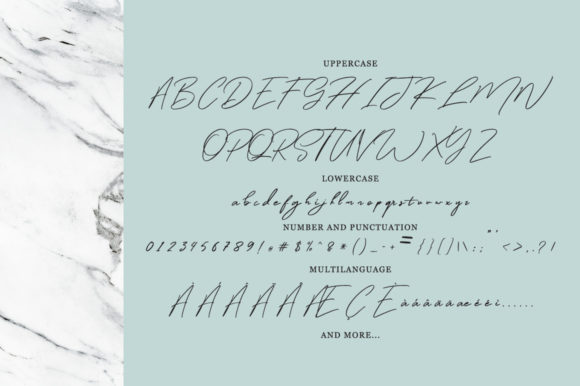 UPPERCASE
ABCDEFGHIJKLMN
OPQRSTUVWXYZ
LOWERCASE
abcdefghijklmnopqrstuvwxyz
NUMBER AND PUNCTUATION
0123456789!"#$%^&*()_-+={}[]\\:;"'<>,.?!
MULTILANGUAGE
ÀÁÂÃÄÅÆÇÈàáâãäåæèéêi......
AND MORE...